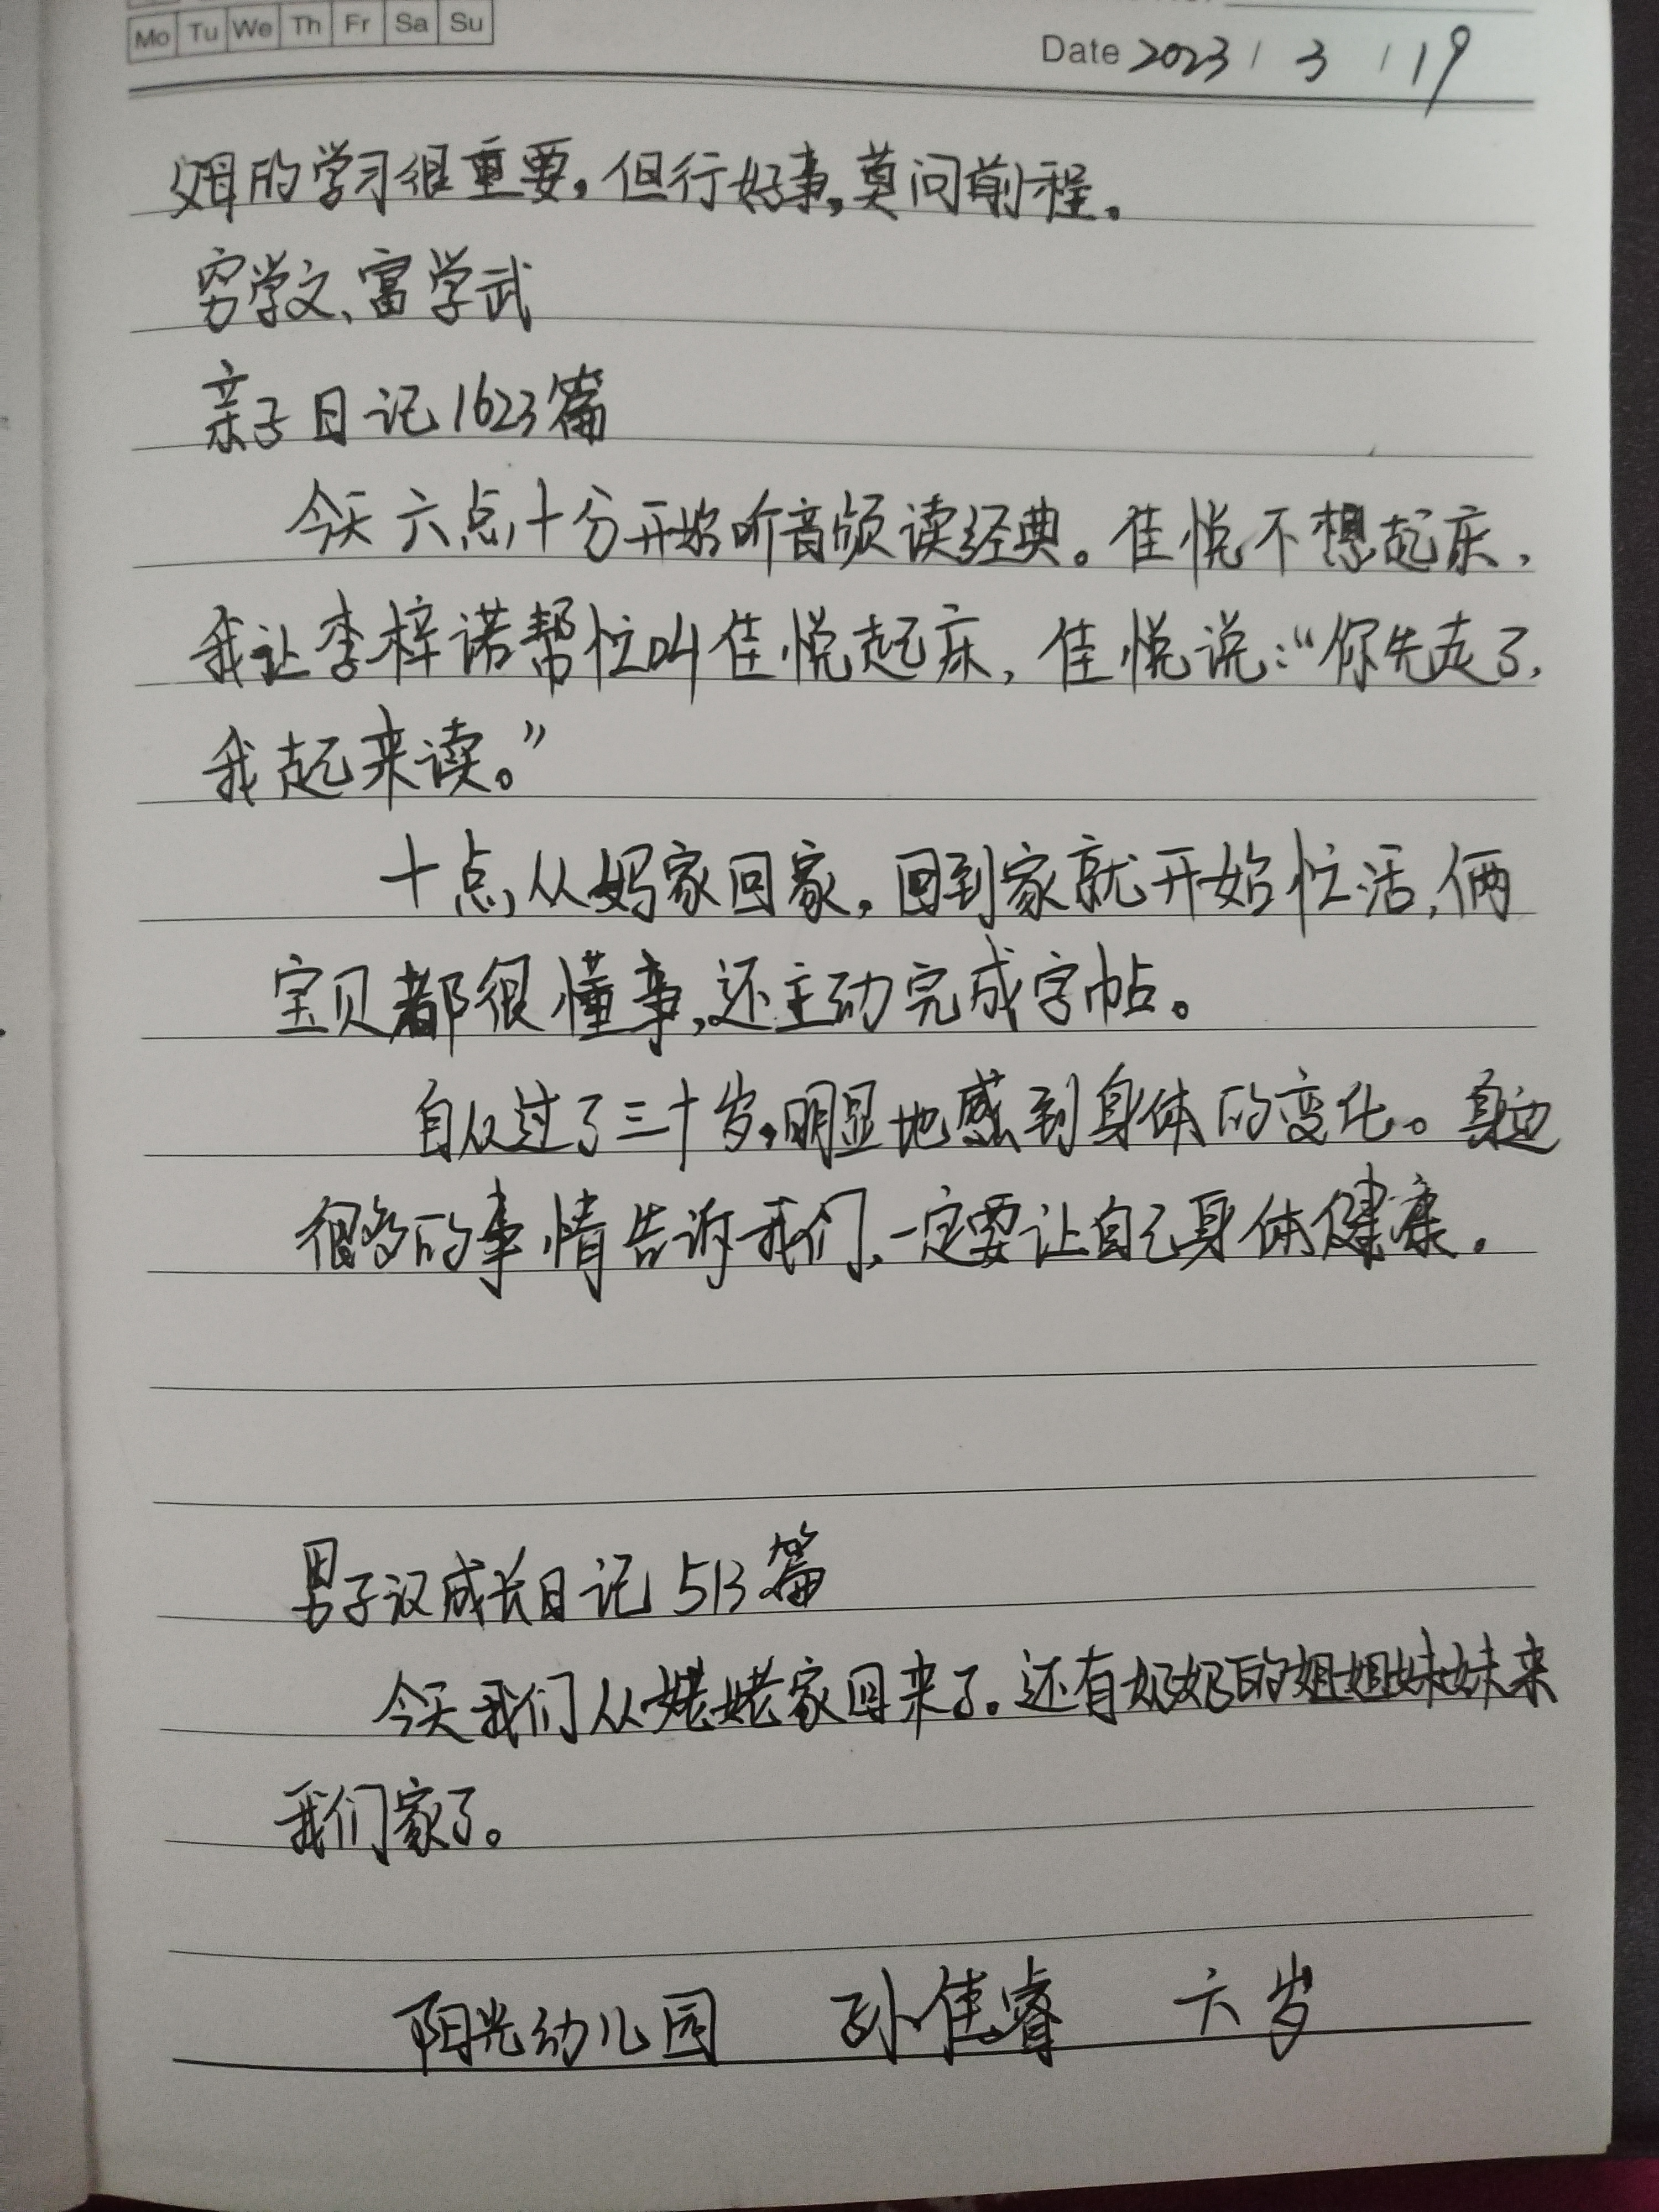 Mo Tu We Th Fr Sa Su
Date 2023 / 3 / 19
姆的学习很重要，但行好事，莫问前程。
穷学文、富学武
亲子日记1623篇
今天六点十分开始听音频读经典。佳悦不想起床，
我让李梓诺帮忙叫佳悦起床，佳悦说：“你先走了，
我起来读。”
十点从妈家回家，回到家就开始忙活，俩
宝贝都很懂事，还主动完成字帖。
自从过了三十岁，明显地感到身体的变化。身边
很多的事情告诉我们、一定要让自己身体健康。
男子汉成长日记513篇
今天我们从姥姥家回来了。还有奶奶的姐姐妹妹来
我们家了。
阳光幼儿园 孙佳睿 六岁